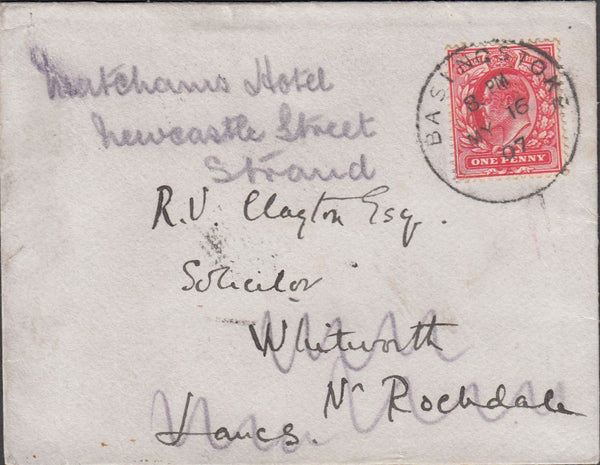 Matchams Hotel
Newcastle Street
Strand
BASINGSTOKE
8 PM
MY 16
07
ONE PENNY
R.V. Clayton Esq.
Solicitor
Whitworth
Nr Rochdale
Lancs.